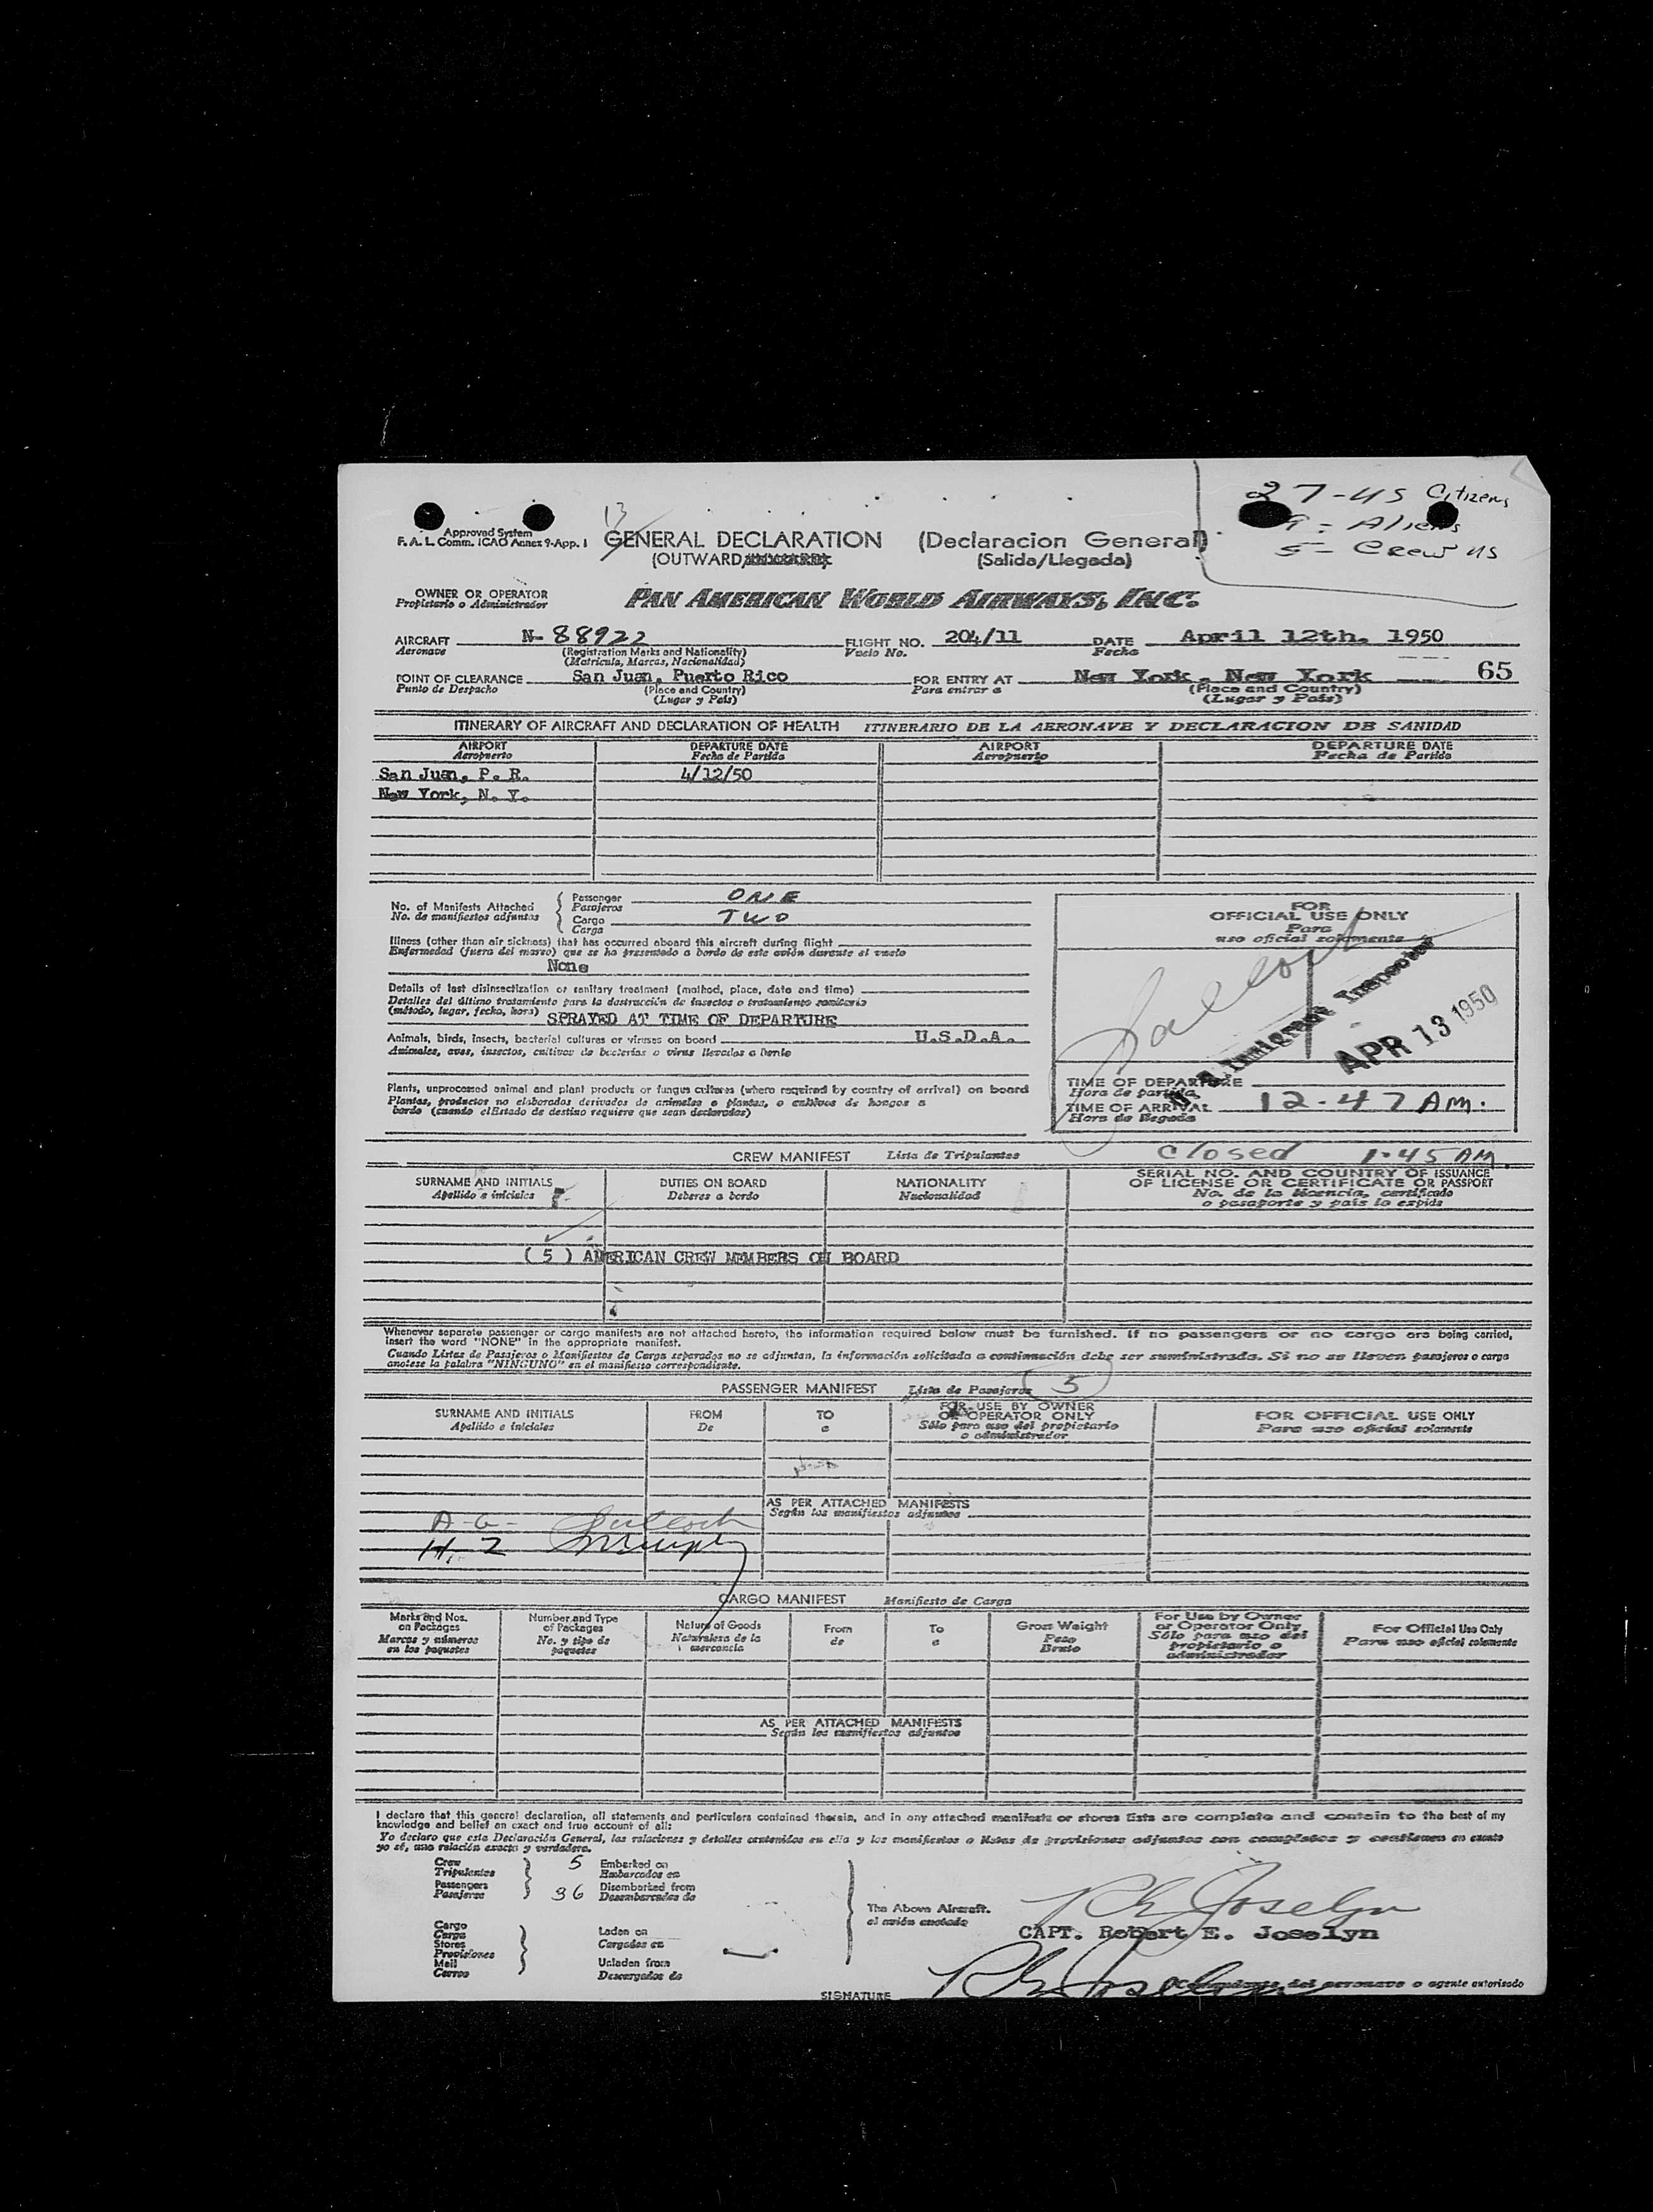 27-US Citizens
9 - Aliens
5 - Crew US
13
Approved System
F. A. L. Comm. ICAO Annex 9-App. 1
GENERAL DECLARATION (Declaracion General)
(OUTWARD/INWARD) (Salida/Llegada)
OWNER OR OPERATOR PAN AMERICAN WORLD AIRWAYS, INC.
Propietario o Administrador
AIRCRAFT N-88922 FLIGHT NO. 204/11 DATE April 12th, 1950
Aeronave (Registration Marks and Nationality) Vuelo No. Fecha
(Matricula, Marcas, Nacionalidad)
POINT OF CLEARANCE San Juan, Puerto Rico FOR ENTRY AT New York, New York 65
Punto de Despacho (Place and Country) Para entrar a (Place and Country)
(Lugar y País) (Lugar y País)
ITINERARY OF AIRCRAFT AND DECLARATION OF HEALTH ITINERARIO DE LA AERONAVE Y DECLARACION DE SANIDAD
AIRPORT DEPARTURE DATE AIRPORT DEPARTURE DATE
Aeropuerto Fecha de Partida Aeropuerto Fecha de Partida
San Juan, P. R. 4/12/50
New York, N. Y.
No. of Manifests Attached
No. de manifiestos adjuntos
Passenger ONE
Pasajeros
Cargo TWO
Carga
Illness (other than air sickness) that has occurred aboard this aircraft during flight
Enfermedad (fuera del mareo) que se ha presentado a bordo de este avión durante el vuelo
None
Details of last disinsectization or sanitary treatment (method, place, date and time)
Detalles del último tratamiento para la destrucción de insectos o tratamiento sanitario
(método, lugar, fecha, hora) SPRAYED AT TIME OF DEPARTURE
Animals, birds, insects, bacterial cultures or viruses on board U.S.D.A.
Animales, aves, insectos, cultivos de bacterias o virus llevados a bordo
Plants, unprocessed animal and plant products or fungus cultures (where required by country of arrival) on board
Plantas, productos no elaborados derivados de animales o plantas, o cultivos de hongos a
bordo (cuando el Estado de destino requiere que sean declarados)
FOR
OFFICIAL USE ONLY
Para
uso oficial solamente
Immigrant Inspector
APR 13 1950
TIME OF DEPARTURE
Hora de partida
TIME OF ARRIVAL 12-47 AM.
Hora de llegada
Closed 1-45 AM.
CREW MANIFEST Lista de Tripulantes
SURNAME AND INITIALS DUTIES ON BOARD NATIONALITY SERIAL NO. AND COUNTRY OF ISSUANCE
Apellido e iniciales Deberes a bordo Nacionalidad OF LICENSE OR CERTIFICATE OR PASSPORT
No. de la licencia, certificado
o pasaporte y país lo expide
( 5 ) AMERICAN CREW MEMBERS ON BOARD
Whenever separate passenger or cargo manifests are not attached hereto, the information required below must be furnished. If no passengers or no cargo are being carried,
insert the word "NONE" in the appropriate manifest.
Cuando Listas de Pasajeros o Manifiestos de Carga separados no se adjuntan, la información solicitada a continuación debe ser suministrada. Si no se lleven pasajeros o carga
anotese la palabra "NINGUNO" en el manifiesto correspondiente.
PASSENGER MANIFEST Lista de Pasajeros 5
SURNAME AND INITIALS FROM TO FOR USE BY OWNER OR OPERATOR ONLY FOR OFFICIAL USE ONLY
Apellido e iniciales De a Sólo para uso del propietario o administrador Para uso oficial solamente
AS PER ATTACHED MANIFESTS
Según los manifiestos adjuntos
A-G-
H. Z Murphy
CARGO MANIFEST Manifiesto de Carga
Marks and Nos. on Packages Number and Type of Packages Nature of Goods From To Gross Weight For Use by Owner or Operator Only For Official Use Only
Marcas y números en los paquetes No. y tipo de paquetes Naturalesa de la mercancía de a Peso Bruto Sólo para uso del propietario o administrador Para uso oficial solamente
AS PER ATTACHED MANIFESTS
Según los manifiestos adjuntos
I declare that this general declaration, all statements and particulars contained therein, and in any attached manifests or stores lists are complete and contain to the best of my
knowledge and belief an exact and true account of all:
Yo declaro que esta Declaración General, las relaciones y detalles contenidos en ella y los manifiestos o listas de provisiones adjuntos son completos y contienen en cuanto
yo sé, una relación exacta y verdadera.
Crew 5 Embarked on
Tripulantes Embarcados en
Passengers 36 Disembarked from
Pasajeros Desembarcados de
Cargo
Carga
Stores
Provisiones
Mail
Correo
Laden on
Cargados en
Unladen from
Descargados de
The Above Aircraft.
el avión anotado
R E Joselyn
CAPT. Robert E. Joselyn
SIGNATURE R E Joselyn
Comandante del aeronave o agente autorizado